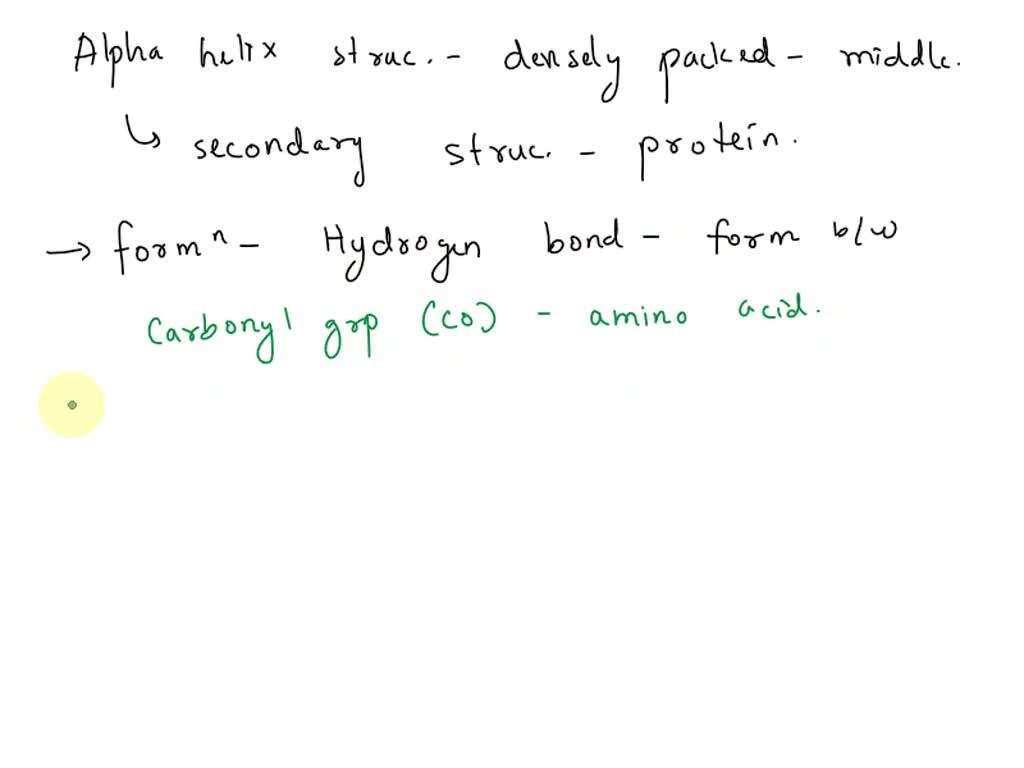 Alpha helix struc. - densely packed - middle.
↳ secondary struc. - protein.
→ formⁿ - Hydrogen bond - form b/w
Carbonyl grp (co) - amino acid.